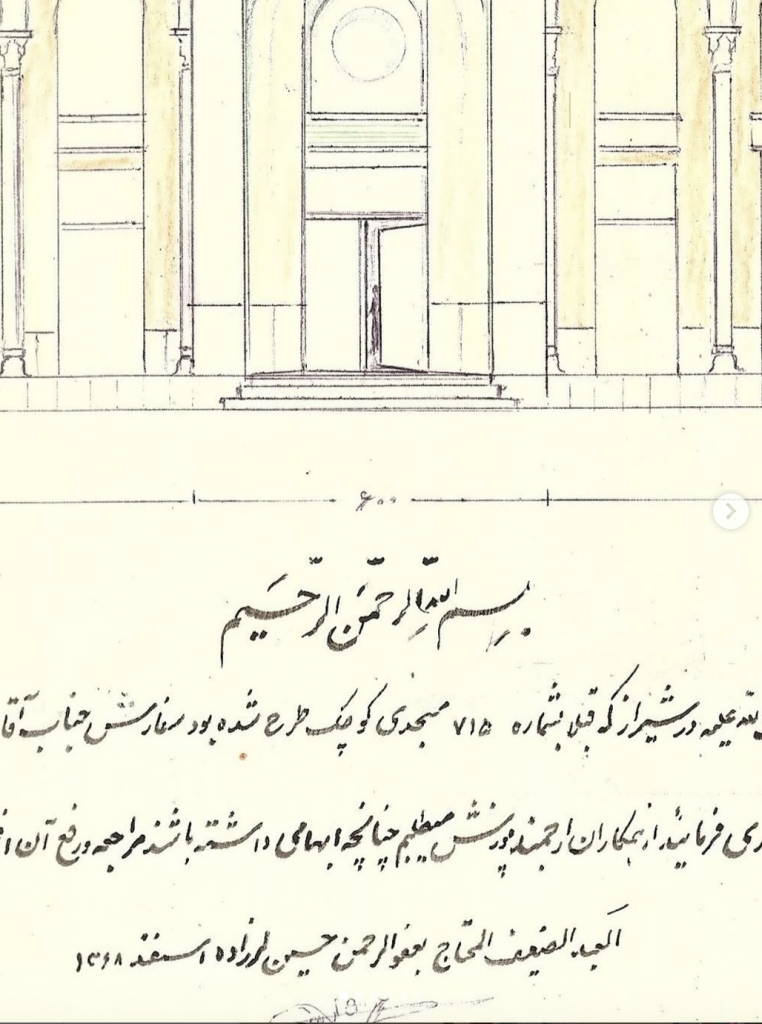 ۶۰۰
بسم الله الرحمن الرحیم
الله علیه در شیراز که قبلا بشماره ۷۱۵ مسجدی کوچک طرح شده بود سفارش جناب آقا
فرمائید از همکاران ارجمند پوزش میطلبم چنانچه ابهامی داشته باشند مراجعه و رفع آن
العبد الضعیف المحتاج بعفو الرحمن حسین لرزاده اسفند ۱۳۶۸